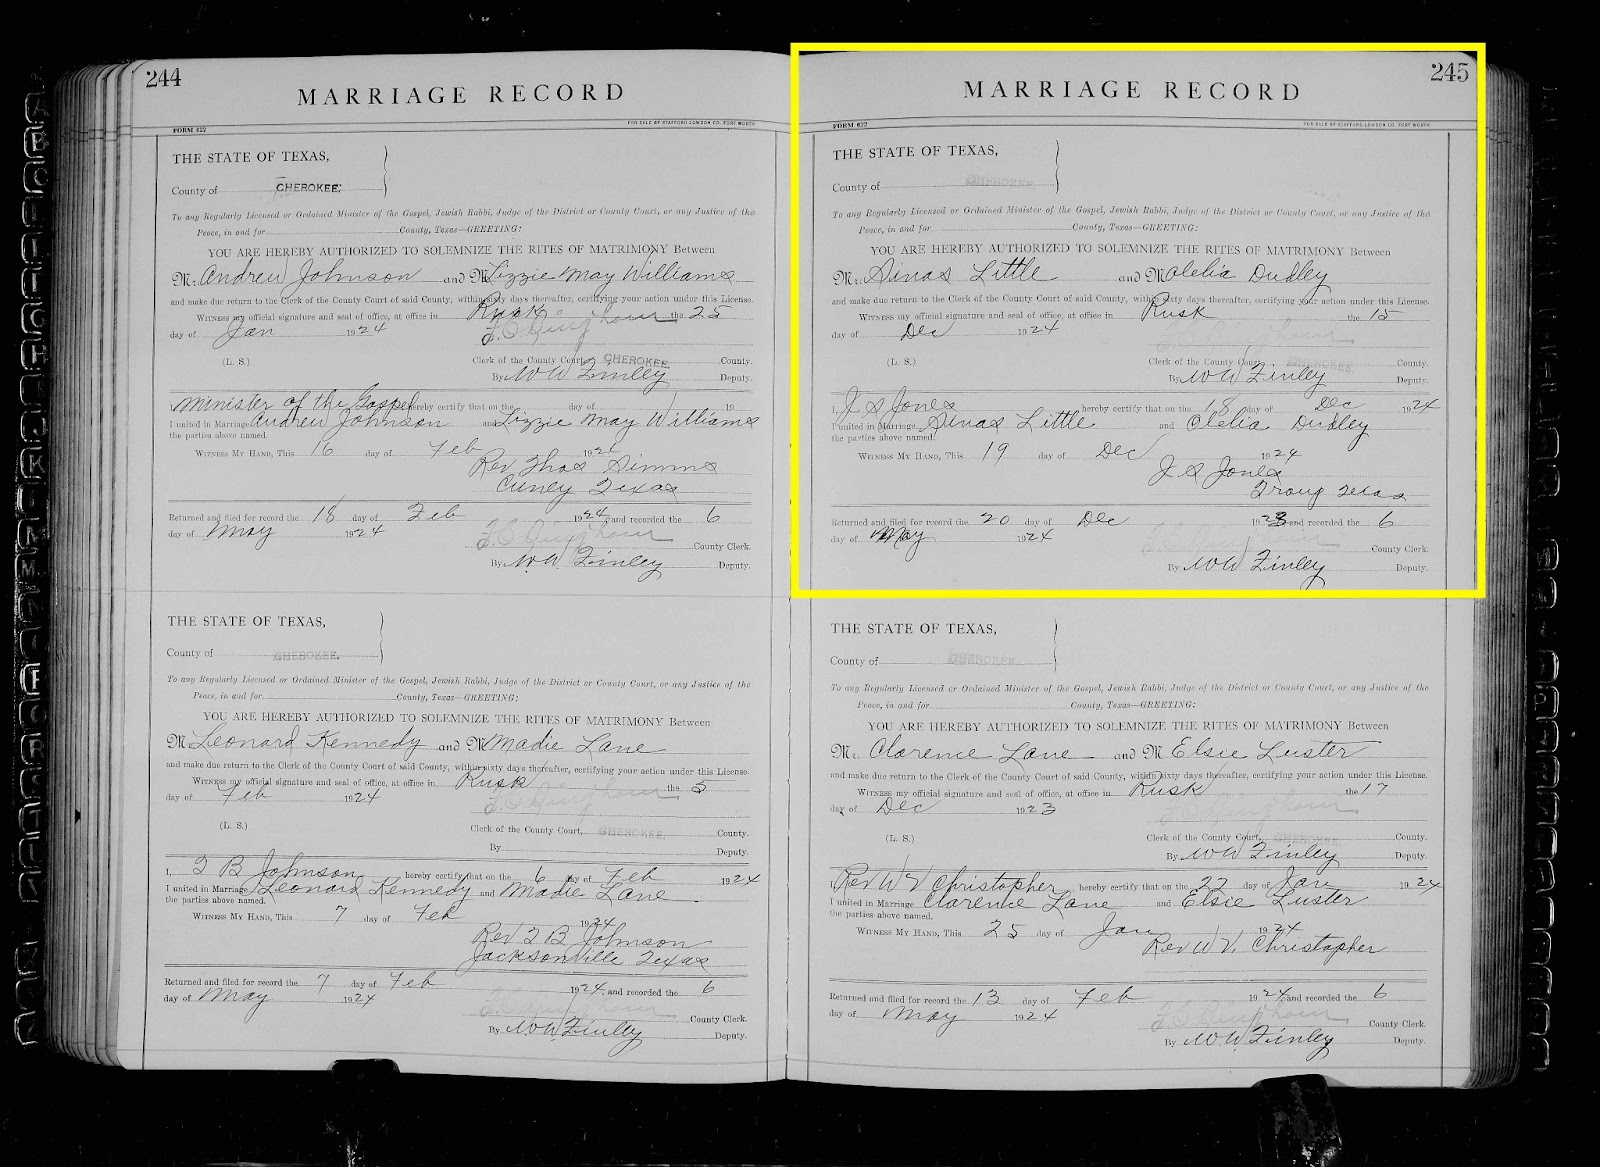 244
MARRIAGE RECORD
FORM 622
FOR SALE BY STAFFORD-LOWDON CO. FORT WORTH
THE STATE OF TEXAS,
County of CHEROKEE.
To any Regularly Licensed or Ordained Minister of the Gospel, Jewish Rabbi, Judge of the District or County Court, or any Justice of the
Peace, in and for County, Texas—GREETING:
YOU ARE HEREBY AUTHORIZED TO SOLEMNIZE THE RITES OF MATRIMONY Between
Mr. Andrew Johnson and M Lizzie May Williams
and make due return to the Clerk of the County Court of said County, within sixty days thereafter, certifying your action under this License.
WITNESS my official signature and seal of office, at office in Rusk the 25
day of Jan 1924
(L. S.) Clerk of the County Court, CHEROKEE County.
By W W Finley Deputy.
I, Minister of the Gospel hereby certify that on the day of 19
I united in Marriage Andrew Johnson and Lizzie May Williams
the parties above named.
WITNESS MY HAND, This 16 day of Feb 1924
Rev Thos Simms
Cuney Texas
Returned and filed for record the 18 day of Feb 1924 and recorded the 6
day of May 1924
County Clerk.
By W W Finley Deputy.
THE STATE OF TEXAS,
County of CHEROKEE.
To any Regularly Licensed or Ordained Minister of the Gospel, Jewish Rabbi, Judge of the District or County Court, or any Justice of the
Peace, in and for County, Texas—GREETING:
YOU ARE HEREBY AUTHORIZED TO SOLEMNIZE THE RITES OF MATRIMONY Between
M Leonard Kennedy and M Madie Lane
and make due return to the Clerk of the County Court of said County, within sixty days thereafter, certifying your action under this License.
WITNESS my official signature and seal of office, at office in Rusk the 5
day of Feb 1924
(L. S.) Clerk of the County Court, CHEROKEE. County.
By Deputy.
I, B Johnson hereby certify that on the 6 day of Feb 1924
I united in Marriage Leonard Kennedy and Madie Lane
the parties above named.
WITNESS MY HAND, This 7 day of Feb 1924
Rev B Johnson
Jacksonville Texas
Returned and filed for record the 7 day of Feb 1924 and recorded the 6
day of May 1924
County Clerk.
By W W Finley Deputy.
245
MARRIAGE RECORD
FORM 622
FOR SALE BY STAFFORD-LOWDON CO. FORT WORTH
THE STATE OF TEXAS,
County of CHEROKEE
To any Regularly Licensed or Ordained Minister of the Gospel, Jewish Rabbi, Judge of the District or County Court, or any Justice of the
Peace, in and for County, Texas—GREETING:
YOU ARE HEREBY AUTHORIZED TO SOLEMNIZE THE RITES OF MATRIMONY Between
Mr. Sinas Little and M Clelia Dudley
and make due return to the Clerk of the County Court of said County, within sixty days thereafter, certifying your action under this License.
WITNESS my official signature and seal of office, at office in Rusk the 15
day of Dec 1924
(L. S.) Clerk of the County Court CHEROKEE County.
By W W Finley Deputy.
I, J S Jones hereby certify that on the 18 day of Dec 1924
I united in Marriage Sinas Little and Clelia Dudley
the parties above named.
WITNESS MY HAND, This 19 day of Dec 1924
J S Jones
Troup Texas
Returned and filed for record the 20 day of Dec 1923 and recorded the 6
day of May 1924
County Clerk.
By W W Finley Deputy.
THE STATE OF TEXAS,
County of CHEROKEE
To any Regularly Licensed or Ordained Minister of the Gospel, Jewish Rabbi, Judge of the District or County Court, or any Justice of the
Peace, in and for County, Texas—GREETING:
YOU ARE HEREBY AUTHORIZED TO SOLEMNIZE THE RITES OF MATRIMONY Between
Mr. Clarence Lane and M Elsie Luster
and make due return to the Clerk of the County Court of said County, within sixty days thereafter, certifying your action under this License.
WITNESS my official signature and seal of office, at office in Rusk the 17
day of Dec 1923
(L. S.) Clerk of the County Court, CHEROKEE County.
By W W Finley Deputy.
Rev W V Christopher, hereby certify that on the 22 day of Jan 1924
I united in Marriage Clarence Lane and Elsie Luster
the parties above named.
WITNESS MY HAND, This 25 day of Jan 1924
Rev W V. Christopher
Returned and filed for record the 13 day of Feb 1924 and recorded the 6
day of May 1924
County Clerk.
By W W Finley Deputy.